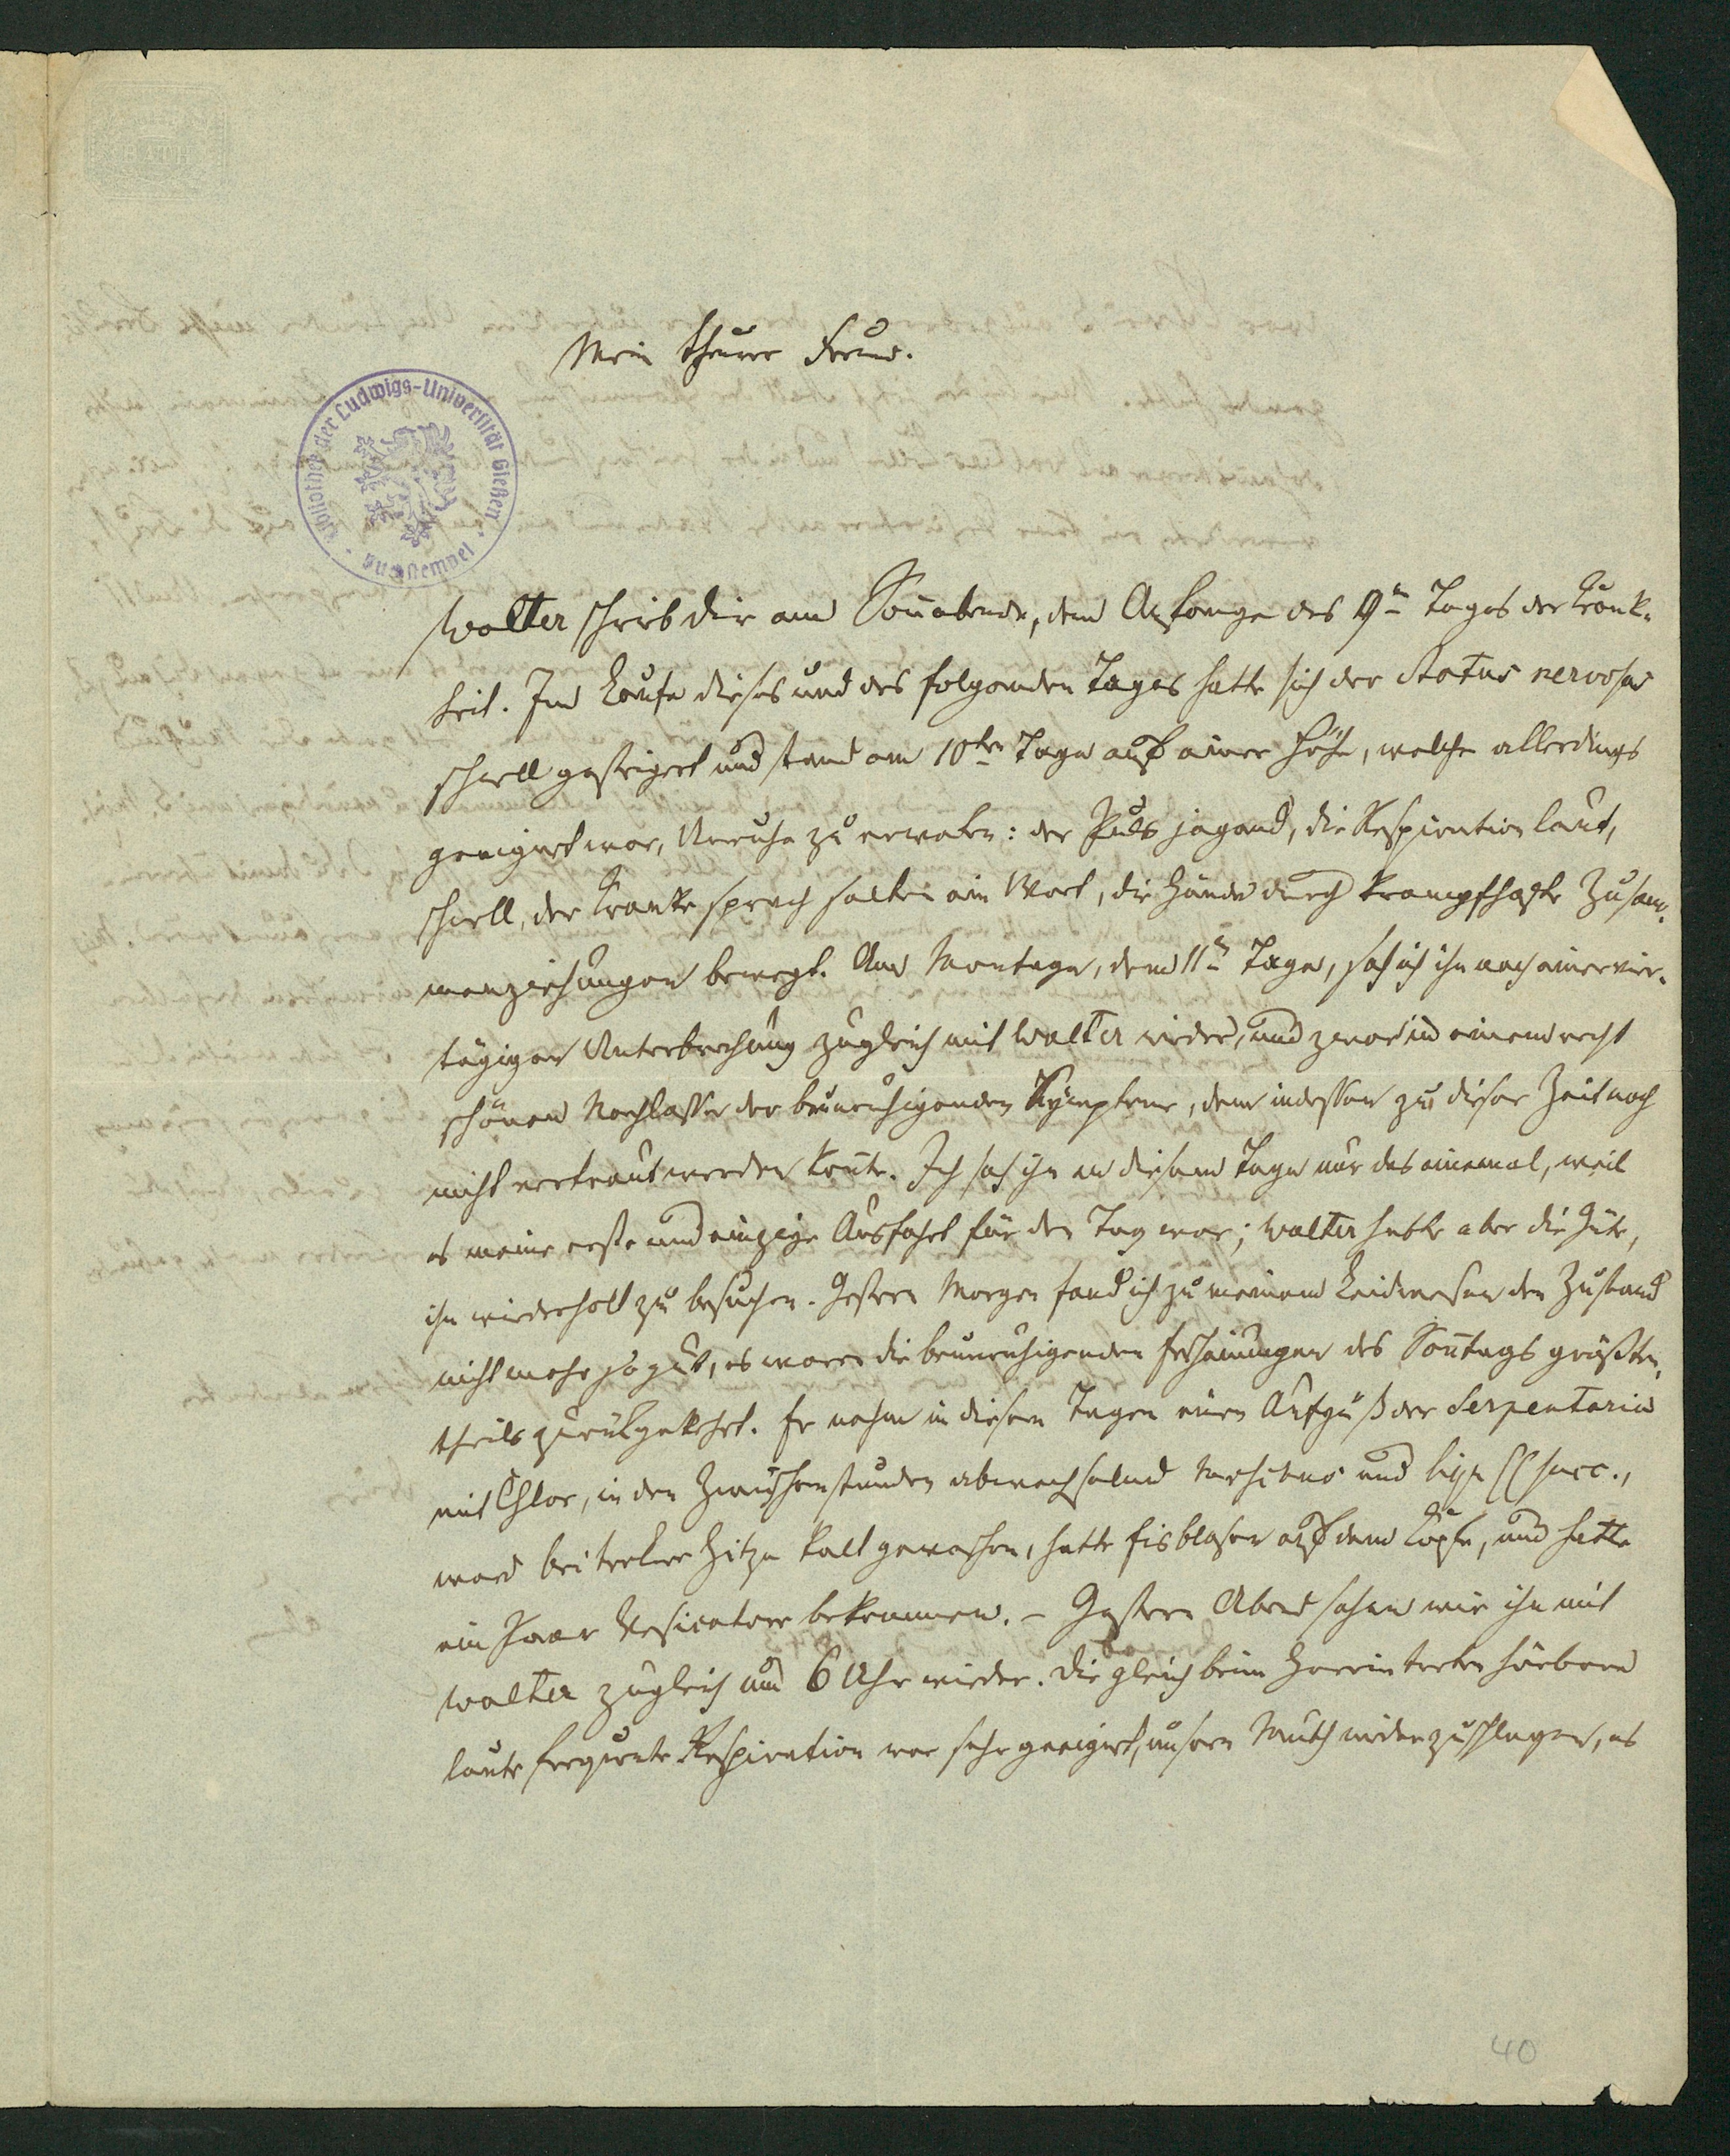 BATH
Mein theurer Freund.
Bibliothek der Ludwigs-Universität Gießen
Walter schrieb dir am Sonnabende, dem Anfange des 9n Tages der Krank-
heit. Im Laufe dieses und des folgenden Tages hatte sich der Status nervosus
schnell gesteigert und stand am 10ten Tage auf einer Höhe, welche allerdings
geeignet war, Unruhe zu erwecken: der Puls jagend, die Respiration laut,
schnell, der Kranke sprach selten ein Wort, die Hände durch krampfhafte Zusam-
menziehungen bewegt. Am Montage, dem 11n Tage, sah ich ihn nach einer vier-
tägigen Unterbrechung zugleich mit Walter wieder, und zwar in einem recht
schönen Nachlasse der beunruhigenden Symptome, dem indessen zu dieser Zeit noch
nicht vertraut werden konnte. Ich sah ihn an diesem Tage nur das einemal, weil
es meine erste und einzige Ausfahrt für den Tag war; Walter hatte aber die Güte,
ihn wiederholt zu besuchen. Gestern Morgen fand ich zu meinem Leidwesen den Zustand
nicht mehr so gut, es waren die beunruhigenden Erscheinungen des Sonntags größten-
theils zurückgekehrt. Er nahm in diesen Tagen einen Aufguß der Serpentaria
mit Chlor, in den Zwischenstunden abwechselnd Moschus und succ.,
ward bei trockner Hitze kalt gewaschen, hatte Eisblasen auf dem Kopfe, und hatte
ein Paar Vesicatore bekommen. – Gestern Abend sahen wir ihn mit
Walter zugleich um 6 Uhr wieder. Die gleich beim Hereintreten hörbare
laute frequente Respiration war sehr geeignet, unsern Muth niederzuschlagen, es
40